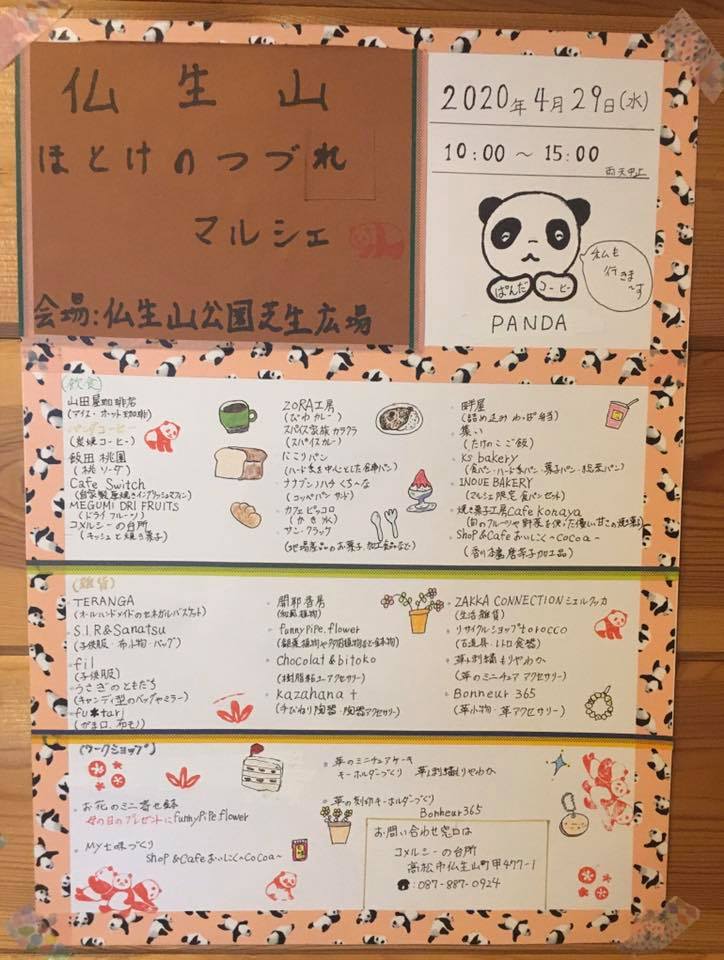 仏生山
ほとけのつづれ
マルシェ
会場:仏生山公園芝生広場
2020年4月29日(水)
10:00～15:00
雨天中止
ぱんだ コーヒー
私も
行きま~す
PANDA
(飲食)
山田屋珈琲店
(アイス・ホット珈琲)
パンダコーヒー
(炭焼コーヒー)
飯田桃園
(桃ソーダ)
Cafe Switch
(自家製厚焼きイングリッシュマフィン)
MEGUMI DRI FRUITS
(ドライフルーツ)
コメルシーの台所
(キッシュと焼き菓子)
ZORA工房
(びわカレー)
スパイス家族カラクラ
(スパイスカレー)
にこりパン
(ハード系を中心とした食事パン)
ナナブンノハチくう~な
(コッペパンサンド)
カフェピッコロ
(かき氷)
サン・クラック
(地場産品のお菓子、加工食品など)
畔屋
(詰め込みわっぱ弁当)
集い
(たけのこご飯)
Ks bakery
(食パン・ハード系パン・菓子パン・総菜パン)
INOUE BAKERY
(マルシェ限定食パンセット)
焼き菓子工房Cafe konaya
(旬のフルーツや野菜を使った優しい甘さの焼き菓子)
Shop&Cafeおいしく~Cocoa~
(香川本鷹唐辛子加工品)
(雑貨)
TERANGA
(オールハンドメイドのセネガルバスケット)
S.I.R&Sanatsu
(子供服・布小物・バッグ)
fil
(子供服)
うさぎのともだち
(キャンディ型のバッグやミラー)
fu*tari
(がま口、布モノ)
(和風植物)
funnyPiPe.flower
(観葉植物や多肉植物など鉢本物)
Chocolat&bitoko
(樹脂粘土アクセサリー)
Kazahana+
(手びねり陶器・陶器アクセサリー)
ZAKKA CONNECTIONシエルクッカ
(生活雑貨)
リサイクルショップtorocco
(古道具・レトロ食器)
革と刺繍もりやわか
(革のミニチュアアクセサリー)
Bonneur 365
(革小物・革アクセサリー)
(ワークショップ)
お花のミニ寄せ鉢
母の日のプレゼントにfunnyPiPe.flower
MY七味づくり
Shop&Cafeおいしく~Cocoa~
革のミニチュアケーキ
キーホルダーづくり 革と刺繍もりやわか
革の刻印キーホルダーづくり
Bonheur365
お問い合わせ窓口は
コメルシーの台所
高松市仏生山町甲477-1
☎:087-887-0924